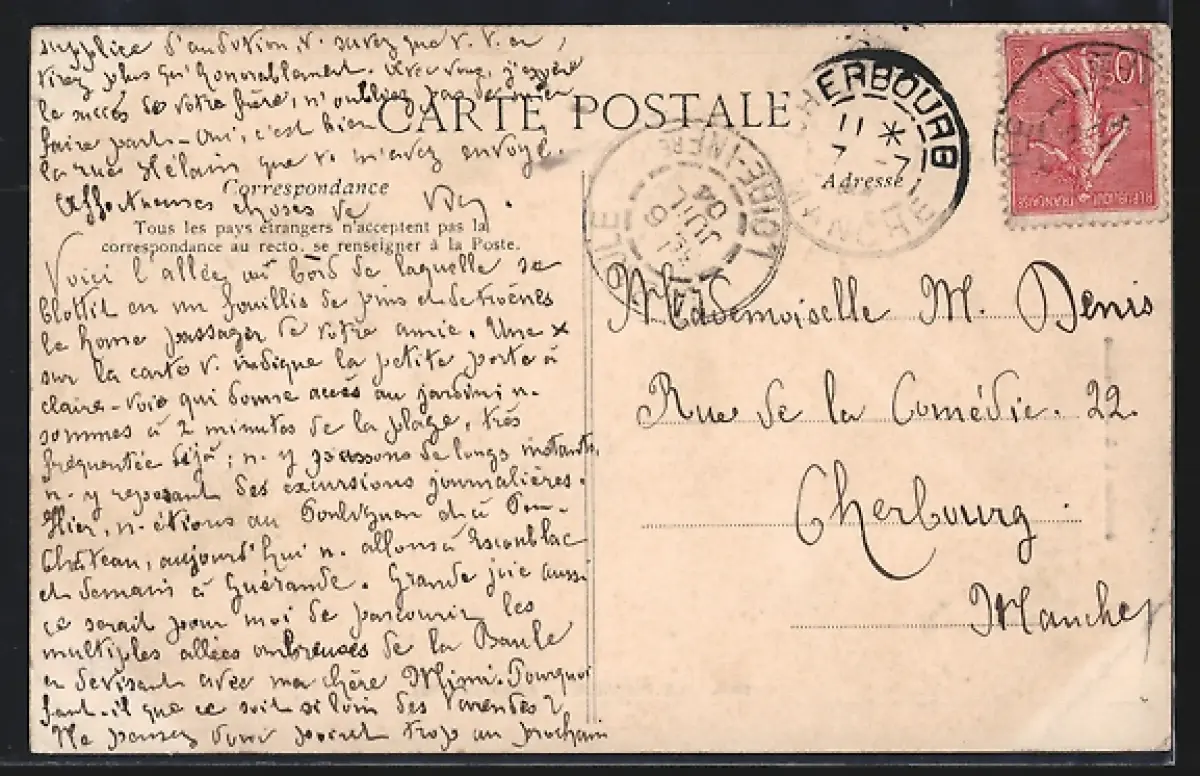 supplice d'audition, v. savez que v. v. en
tirez plus qu'honorablement. Avec vous, j'espère
le succès de votre frère, n'oubliez pas de m'en
faire part. Oui, c'est bien
la rue Hélain que v. m'avez envoyé.
CARTE POSTALE
Correspondance
Affectueuses choses de
Tous les pays étrangers n'acceptent pas la
correspondance au recto, se renseigner à la Poste.
Voici l'allée au bord de laquelle se
blottit en un fouillis de pins et de troènes
le home passager de votre amie. Une x
sur la carte v. indique la petite porte à
claire-voie qui donne accès au jardin; n.
sommes à 2 minutes de la plage, très
fréquentée déjà; n. y passons de longs instants,
n. y reposant des excursions journalières.
Hier, n. étions au Pouliguen et à Pen-
Château, aujourd'hui n. allons à Escoublac
et demain à Guérande. Grande joie aussi
ce serait pour moi de parcourir les
multiples allées ombreuses de la Baule
en devisant avec ma chère Mimi. Pourquoi
faut-il que ce soit si loin des Varendes?
Ne pensez donc point trop au prochain
CHERBOURG
11 *
7 -7
MANCHE
LOIRE-INFRE
6
JUIL
04
Adresse
10
REPUBLIQUE FRANÇAISE
Mademoiselle M. Denis
Rue de la Comédie. 22.
Cherbourg.
Manche